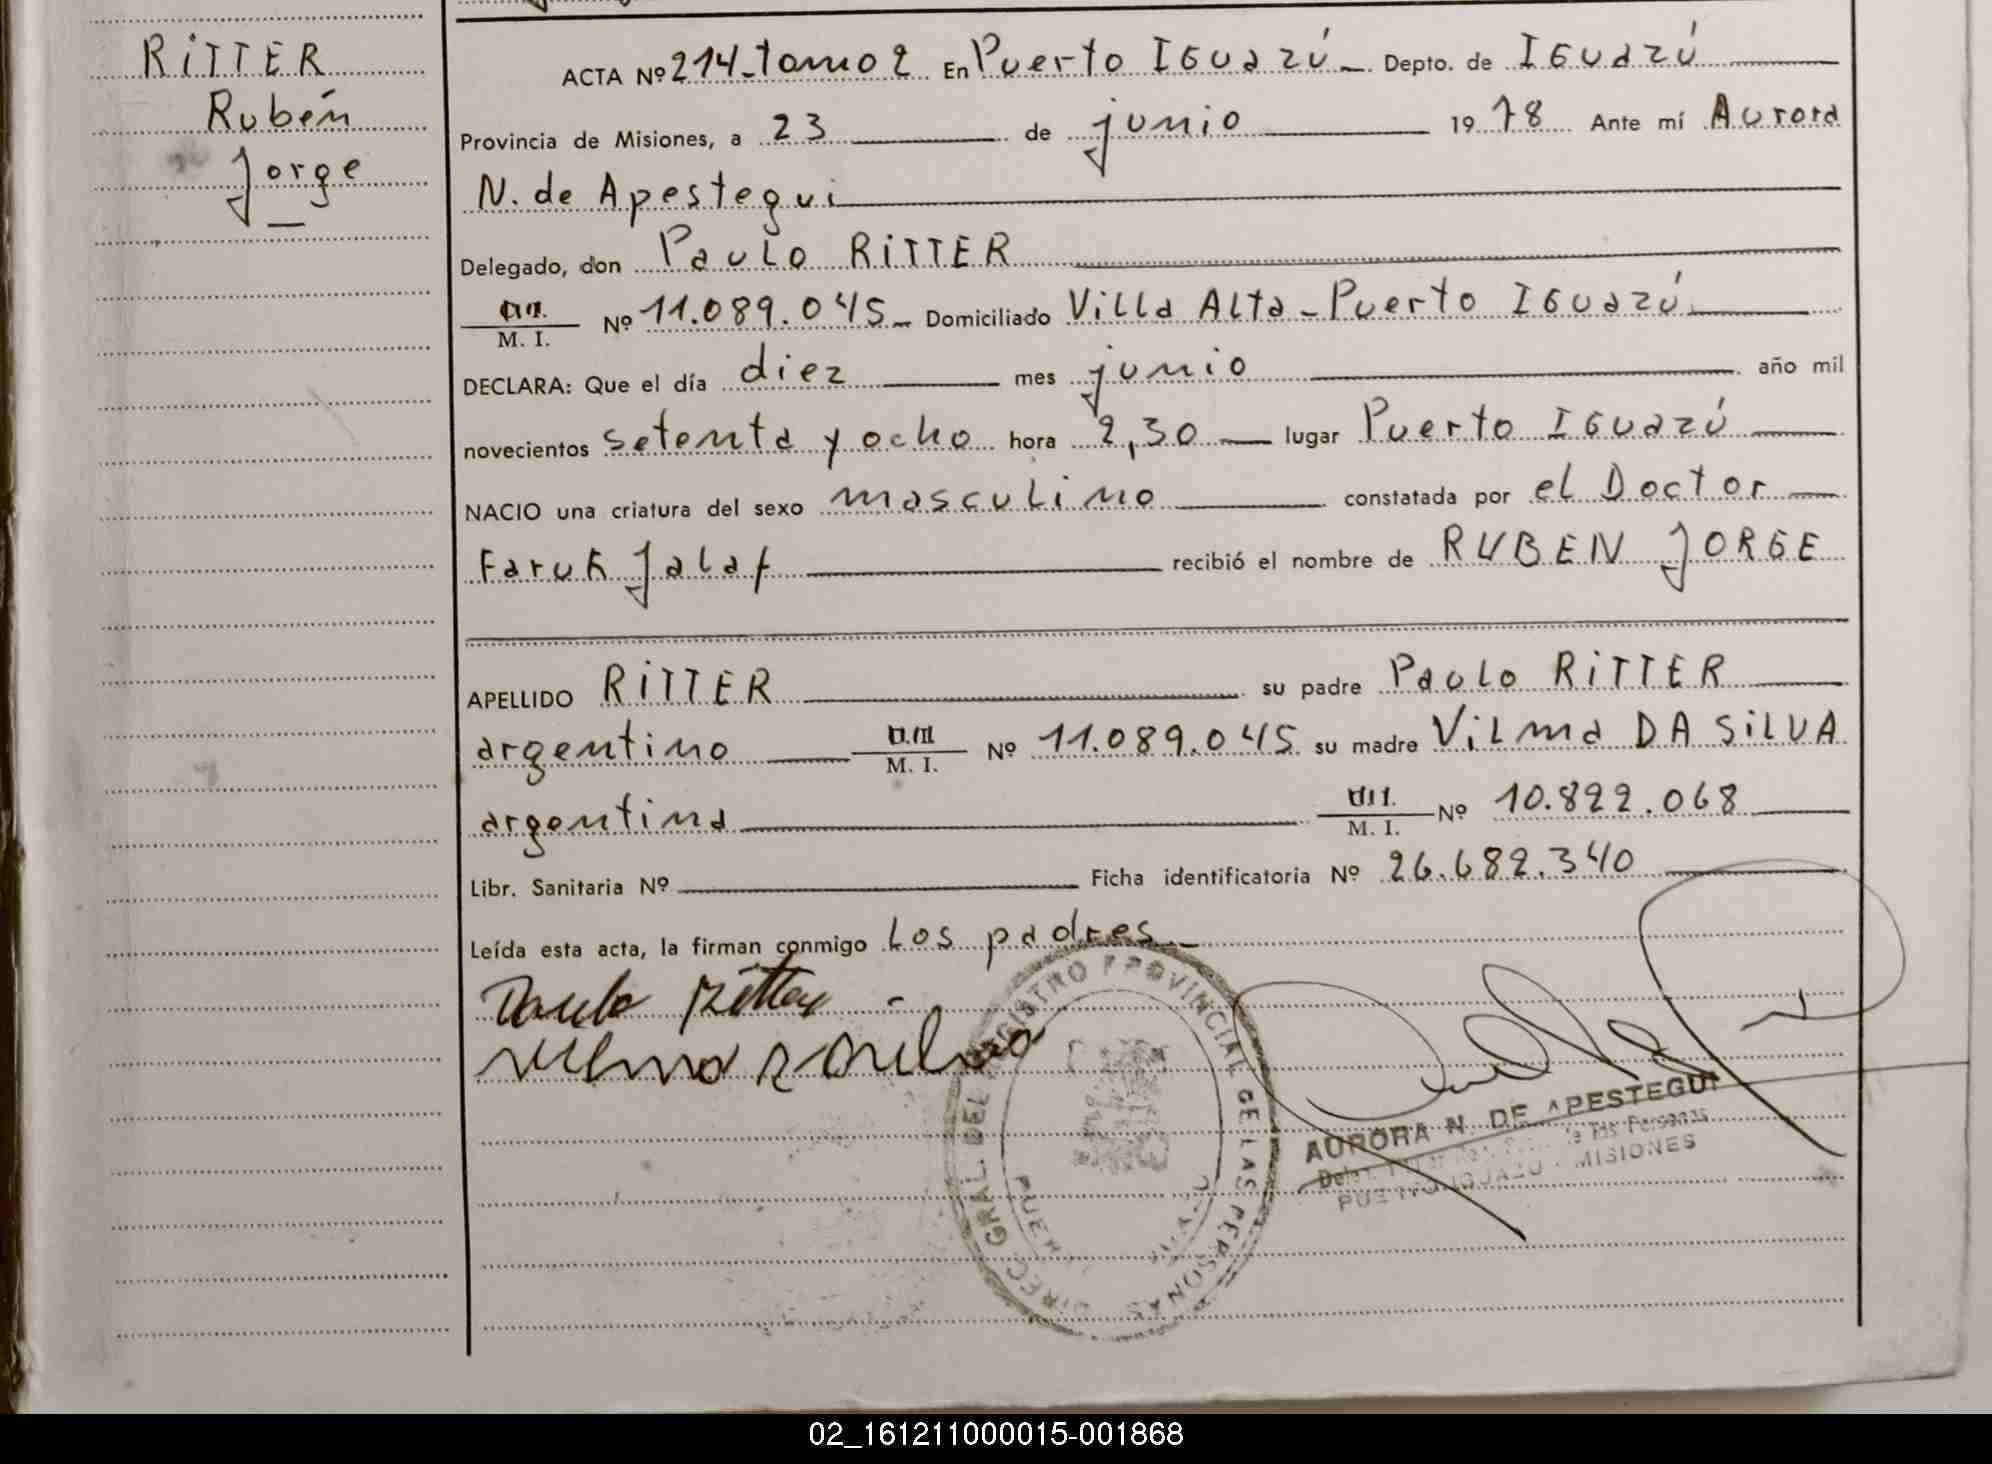 RITTER
Rubén
Jorge
ACTA Nº 214-tomo 2 En Puerto IGuazú Depto. de IGuazú
Provincia de Misiones, a 23 de junio 1978 Ante mí Aurora
N. de Apestegui
Delegado, don Paulo RITTER
M. I. Nº 11.089.045 Domiciliado Villa Alta - Puerto IGuazú
DECLARA: Que el día diez mes junio año mil
novecientos setenta y ocho hora 2,30 lugar Puerto IGuazú
NACIO una criatura del sexo masculino constatada por el Doctor
Faruk Jalaf recibió el nombre de RUBEN JORGE
APELLIDO RITTER su padre Paulo RITTER
argentino M. I. Nº 11.089.045 su madre Vilma DA SILVA
argentina M. I. Nº 10.822.068
Libr. Sanitaria Nº Ficha identificatoria Nº 26.682.340
Leída esta acta, la firman conmigo los padres
Paulo Ritter
DIREC. GRAL. DEL REGISTRO PROVINCIAL DE LAS PERSONAS
AURORA N. DE APESTEGUI
de las Personas
PUERTO IGUAZU - MISIONES
02_161211000015-001868